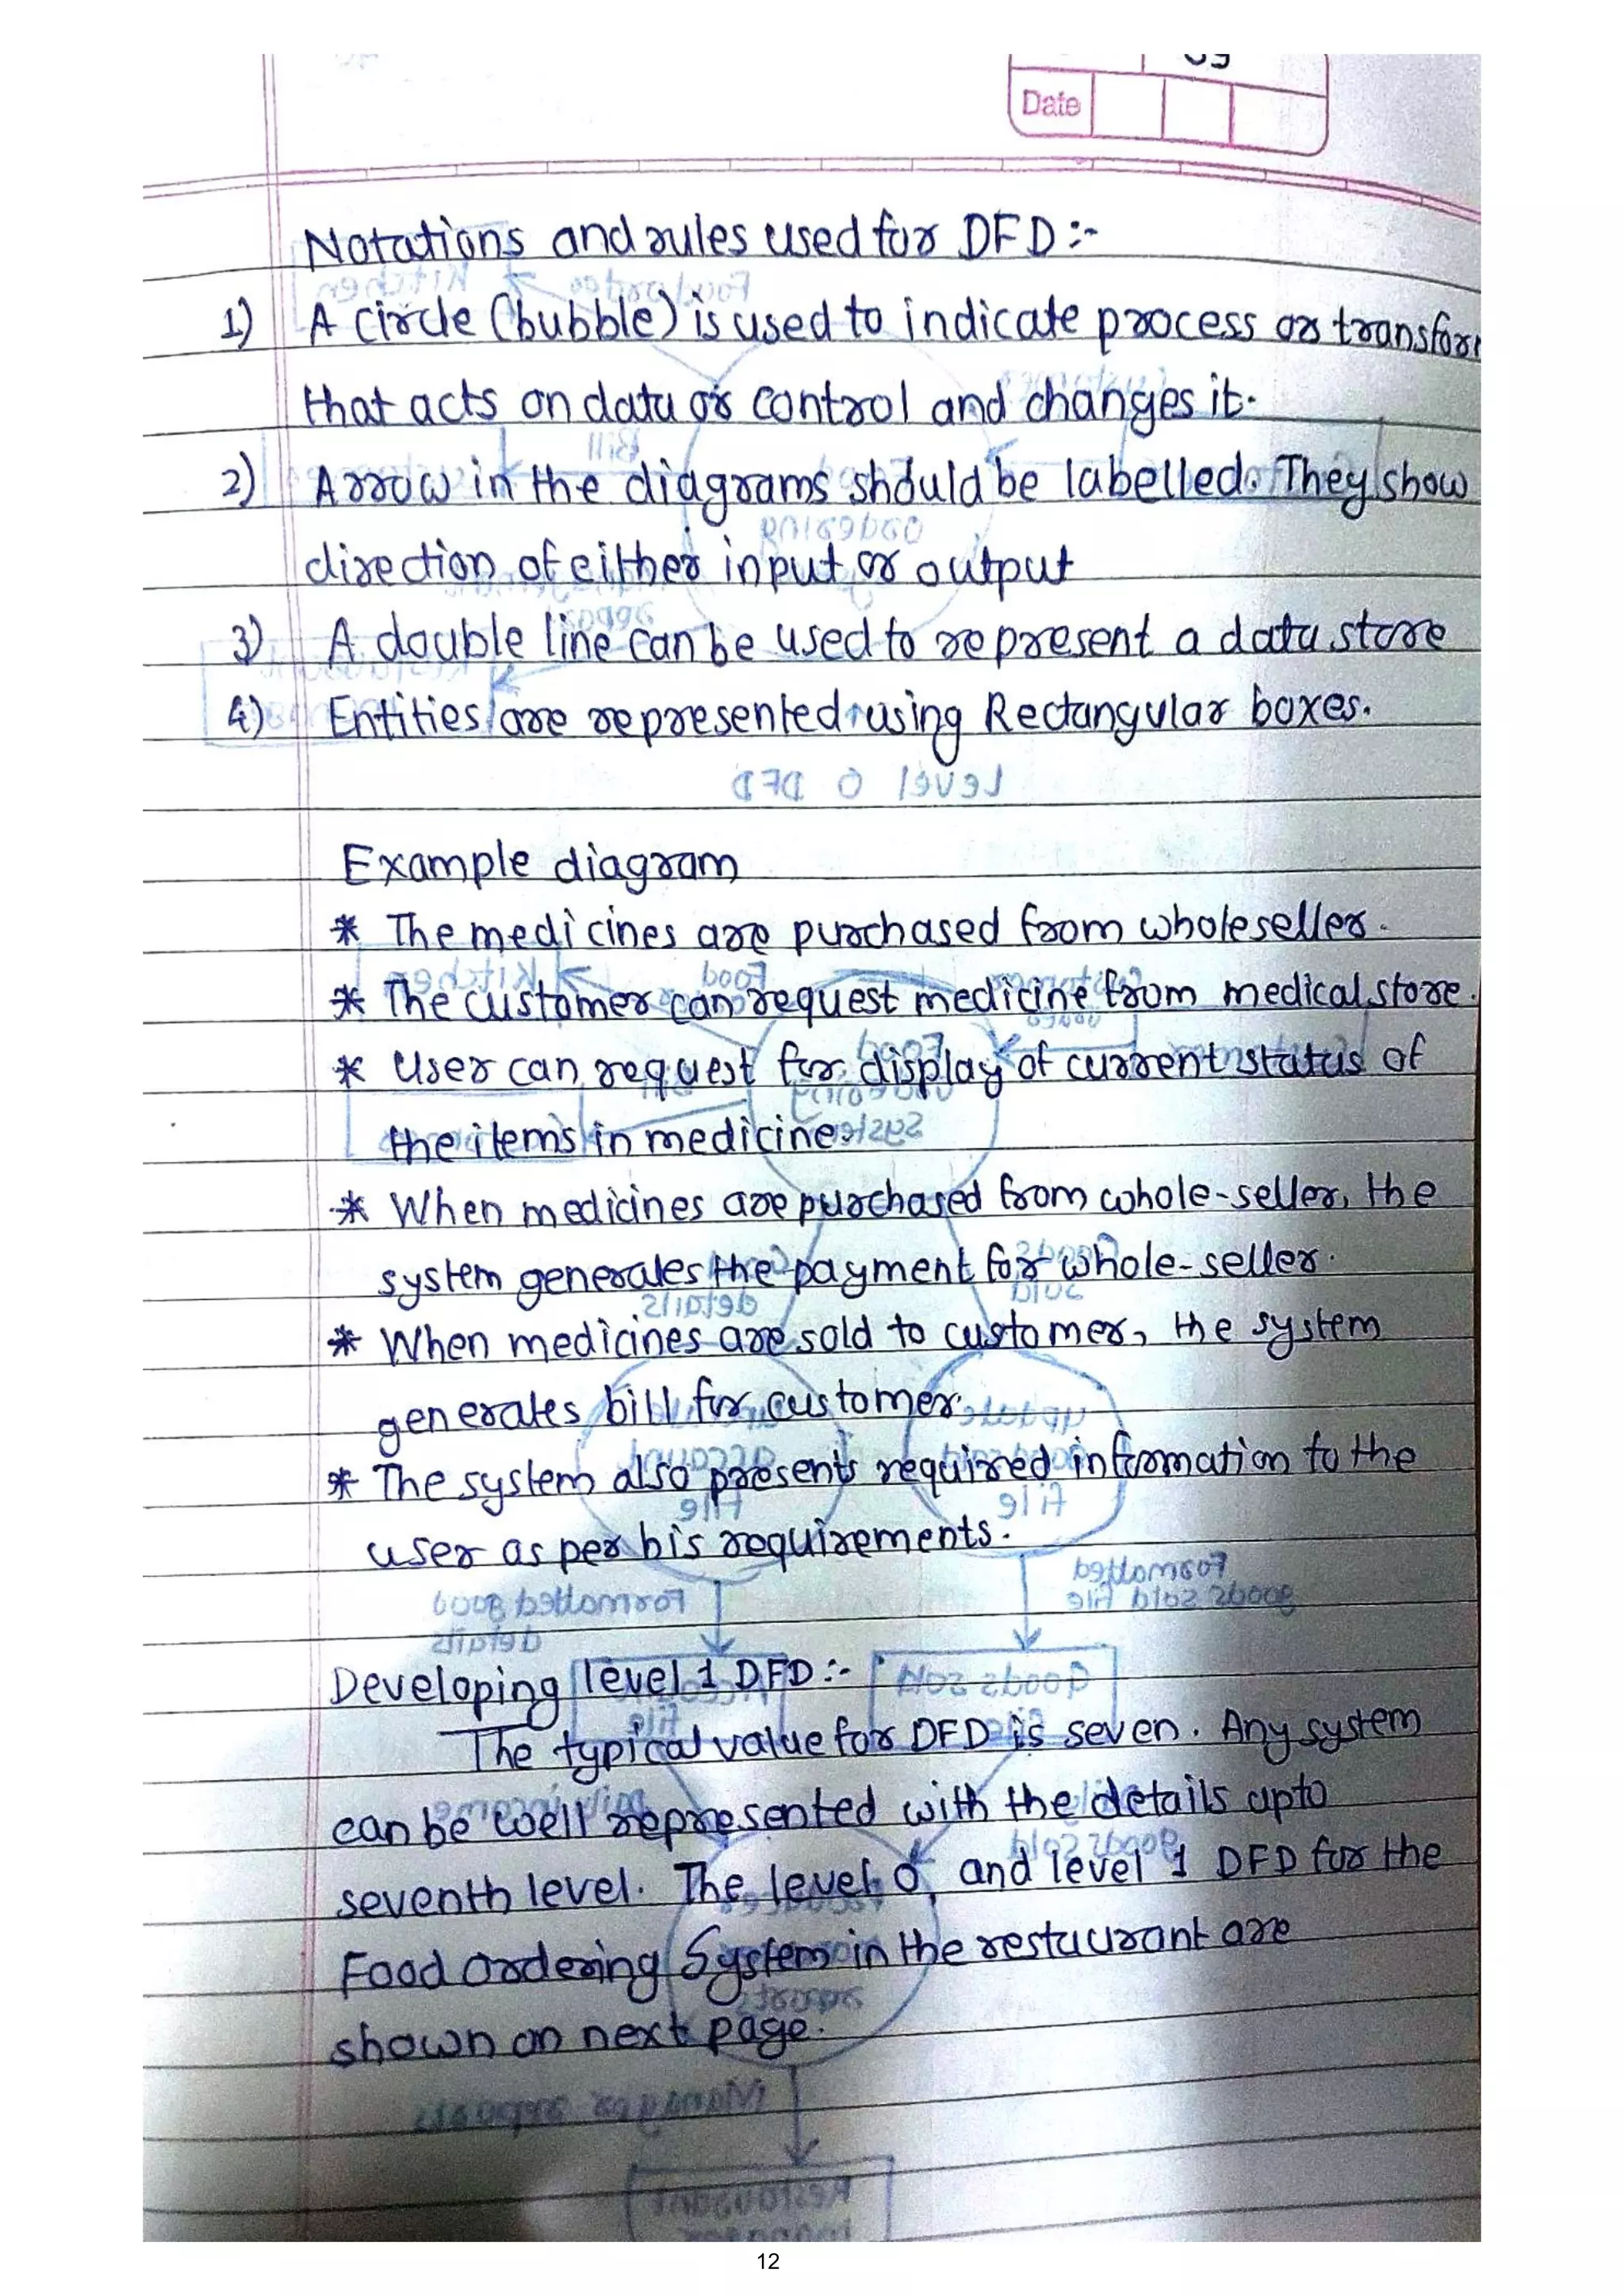 Date
Notations and rules used for DFD :-
1) A circle (bubble) is used to indicate process or transfor
that acts on data or control and changes it.
2) Arrow in the diagrams should be labelled. They show
direction of either input or output
3) A double line can be used to represent a data store
4) Entities are represented using Rectangular boxes.
Level 0 DFD
Example diagram
* The medicines are purchased from wholeseller.
* The customer can request medicine from medical store.
* User can request for display of current status of
the items in medicine.
* When medicines are purchased from whole-seller, the
system generates the payment for whole-seller.
* When medicines are sold to customer, the system
generates bill for customer.
* The system also presents required information to the
user as per his requirements.
Developing level 1 DFD :-
The typical value for DFD is seven. Any system
can be well represented with the details upto
seventh level. The level 0, and level 1 DFD for the
Food Ordering System in the restaurant are
shown on next page.
12